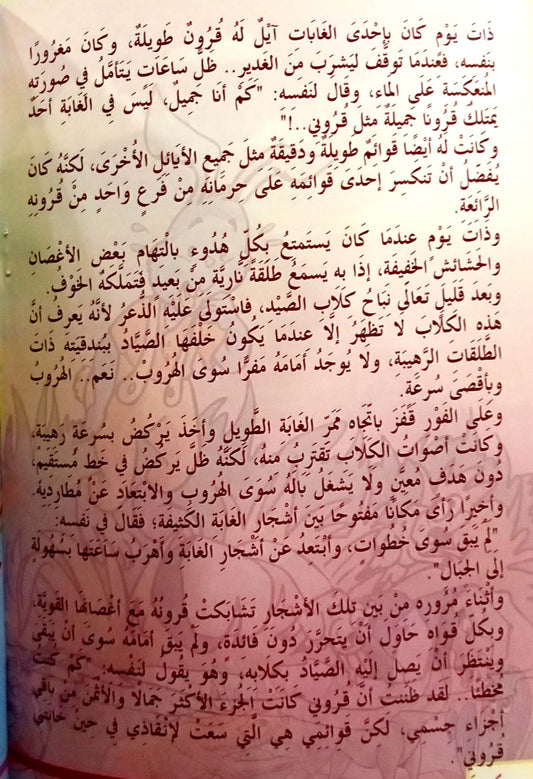 ذَاتَ يَوْمٍ كَانَ بِإِحْدَى الغَابَاتِ آيْلٌ لَهُ قُرُونٌ طَوِيلَةٌ، وَكَانَ مَغْرُورًا
بِنَفْسِهِ، فَعِنْدَمَا تَوَقَّفَ لِيَشْرِبَ مِنَ الغَدِيرِ.. ظَلَّ سَاعَاتٍ يَتَأَمَّلُ فِي صُورَتِهِ
المُنْعَكِسَةِ عَلَى المَاءِ، وَقَالَ لِنَفْسِهِ: "كَمْ أَنَا جَمِيلٌ، لَيْسَ فِي الْغَابَةِ أَحَدٌ
يَمْتَلِكُ قُرُونًا جَمِيلَةً مِثْلَ قُرُونِي..!"
وَكَانَتْ لَهُ أَيْضًا قَوَائِمُ طَوِيلَةٌ وَدَقِيقَةٌ مِثْلَ جَمِيعِ الأَيَائِلِ الأُخْرَى، لَكِنَّهُ كَانَ
يُفَضِّلُ أَنْ تَنْكَسِرَ إِحْدَى قَوَائِمِهِ عَلَى حِرْمَانِهِ مِنْ فَرْعٍ وَاحِدٍ مِنْ قُرُونِهِ
الرَّائِعَةِ.
وَذَاتَ يَوْمٍ عِنْدَمَا كَانَ يَسْتَمْتِعُ بِكُلِّ هُدُوءٍ بِالْتِهَامِ بَعْضِ الأَغْصَانِ
وَالحَشَائِشِ الخَفِيفَةِ، إِذَا بِهِ يَسْمَعُ طَلْقَةً نَّارِيَّةً مِنْ بَعِيدٍ فَتَمَلَّكَهُ الخَوْفُ.
وَبَعْدَ قَلِيلٍ تَعَالَى نِبَاحُ كِلَابِ الصَّيْدِ، فَاسْتَوْلَى عَلَيْهِ الذُّعْرُ لأَنَّهُ يَعْرِفُ أَنَّ
هَذِهِ الكِلَابَ لَا تَظْهَرُ إِلَّا عِنْدَمَا يَكُونُ خَلْفَهَا الصَّيَّادُ بِبُنْدِقِيَّتِهِ ذَاتِ
الطَّلَقَاتِ الرَّهِيبَةِ، وَلَا يُوجَدُ أَمَامَهُ مَفَرًّا سِوَى الهُرُوبِ.. نَعَمْ.. الهُرُوبُ
وَبِأَقْصَى سُرْعَةٍ.
وَعَلَى الفَوْرِ قَفَزَ بِاتِّجَاهِ مَمَرِّ الغَابَةِ الطَّوِيلِ وَأَخَذَ يَرْكُضُ بِسُرْعَةٍ رَهِيبَةٍ،
وَكَانَتْ أَصْوَاتُ الكِلَابِ تَقْتَرِبُ مِنْهُ، لَكِنَّهُ ظَلَّ يَرْكُضُ فِي خَطٍّ مُسْتَقِيمٍ،
دُونَ هَدَفٍ مُعَيَّنٍ وَلَا يَشْغَلُ بَالَهُ سِوَى الهُرُوبِ وَالابْتِعَادِ عَنْ مُطَارِدِيهِ.
وَأَخِيرًا رَأَى مَكَانًا مَفْتُوحًا بَيْنَ أَشْجَارِ الغَابَةِ الكَثِيفَةِ؛ فَقَالَ فِي نَفْسِهِ:
"لَمْ يَبْقَ سِوَى خُطُوَاتٍ، وَأَبْتَعِدُ عَنْ أَشْجَارِ الغَابَةِ وَأَهْرَبُ سَاعَتَهَا بِسُهُولَةٍ
إِلَى الجِبَالِ".
وَأَثْنَاءَ مُرُورِهِ مِنْ بَيْنِ تِلْكَ الأَشْجَارِ تَشَابَكَتْ قُرُونُهُ مَعَ أَغْصَانِهَا القَوِيَّةِ،
وَبِكُلِّ قُوَاهُ حَاوَلَ أَنْ يَتَحَرَّرَ دُونَ فَائِدَةٍ، وَلَمْ يَبْقَ أَمَامَهُ سِوَى أَنْ يَبْقَى
وَيَنْتَظِرَ أَنْ يَصِلَ إِلَيْهِ الصَّيَّادُ بِكِلَابِهِ، وَهُوَ يَقُولُ لِنَفْسِهِ: "كَمْ كُنْتُ
مُخْطِئًا.. لَقَدْ ظَنَنْتُ أَنَّ قُرُونِي كَانَتْ الجُزْءَ الأَكْثَرَ جَمَالًا وَالأَثْمَنَ مِنْ بَاقِي
أَجْزَاءِ جِسْمِي، لَكِنَّ قَوَائِمِي هِيَ الَّتِي سَعَتْ لِإِنْقَاذِي فِي حِينِ خَانَتْنِي
قُرُونِي".